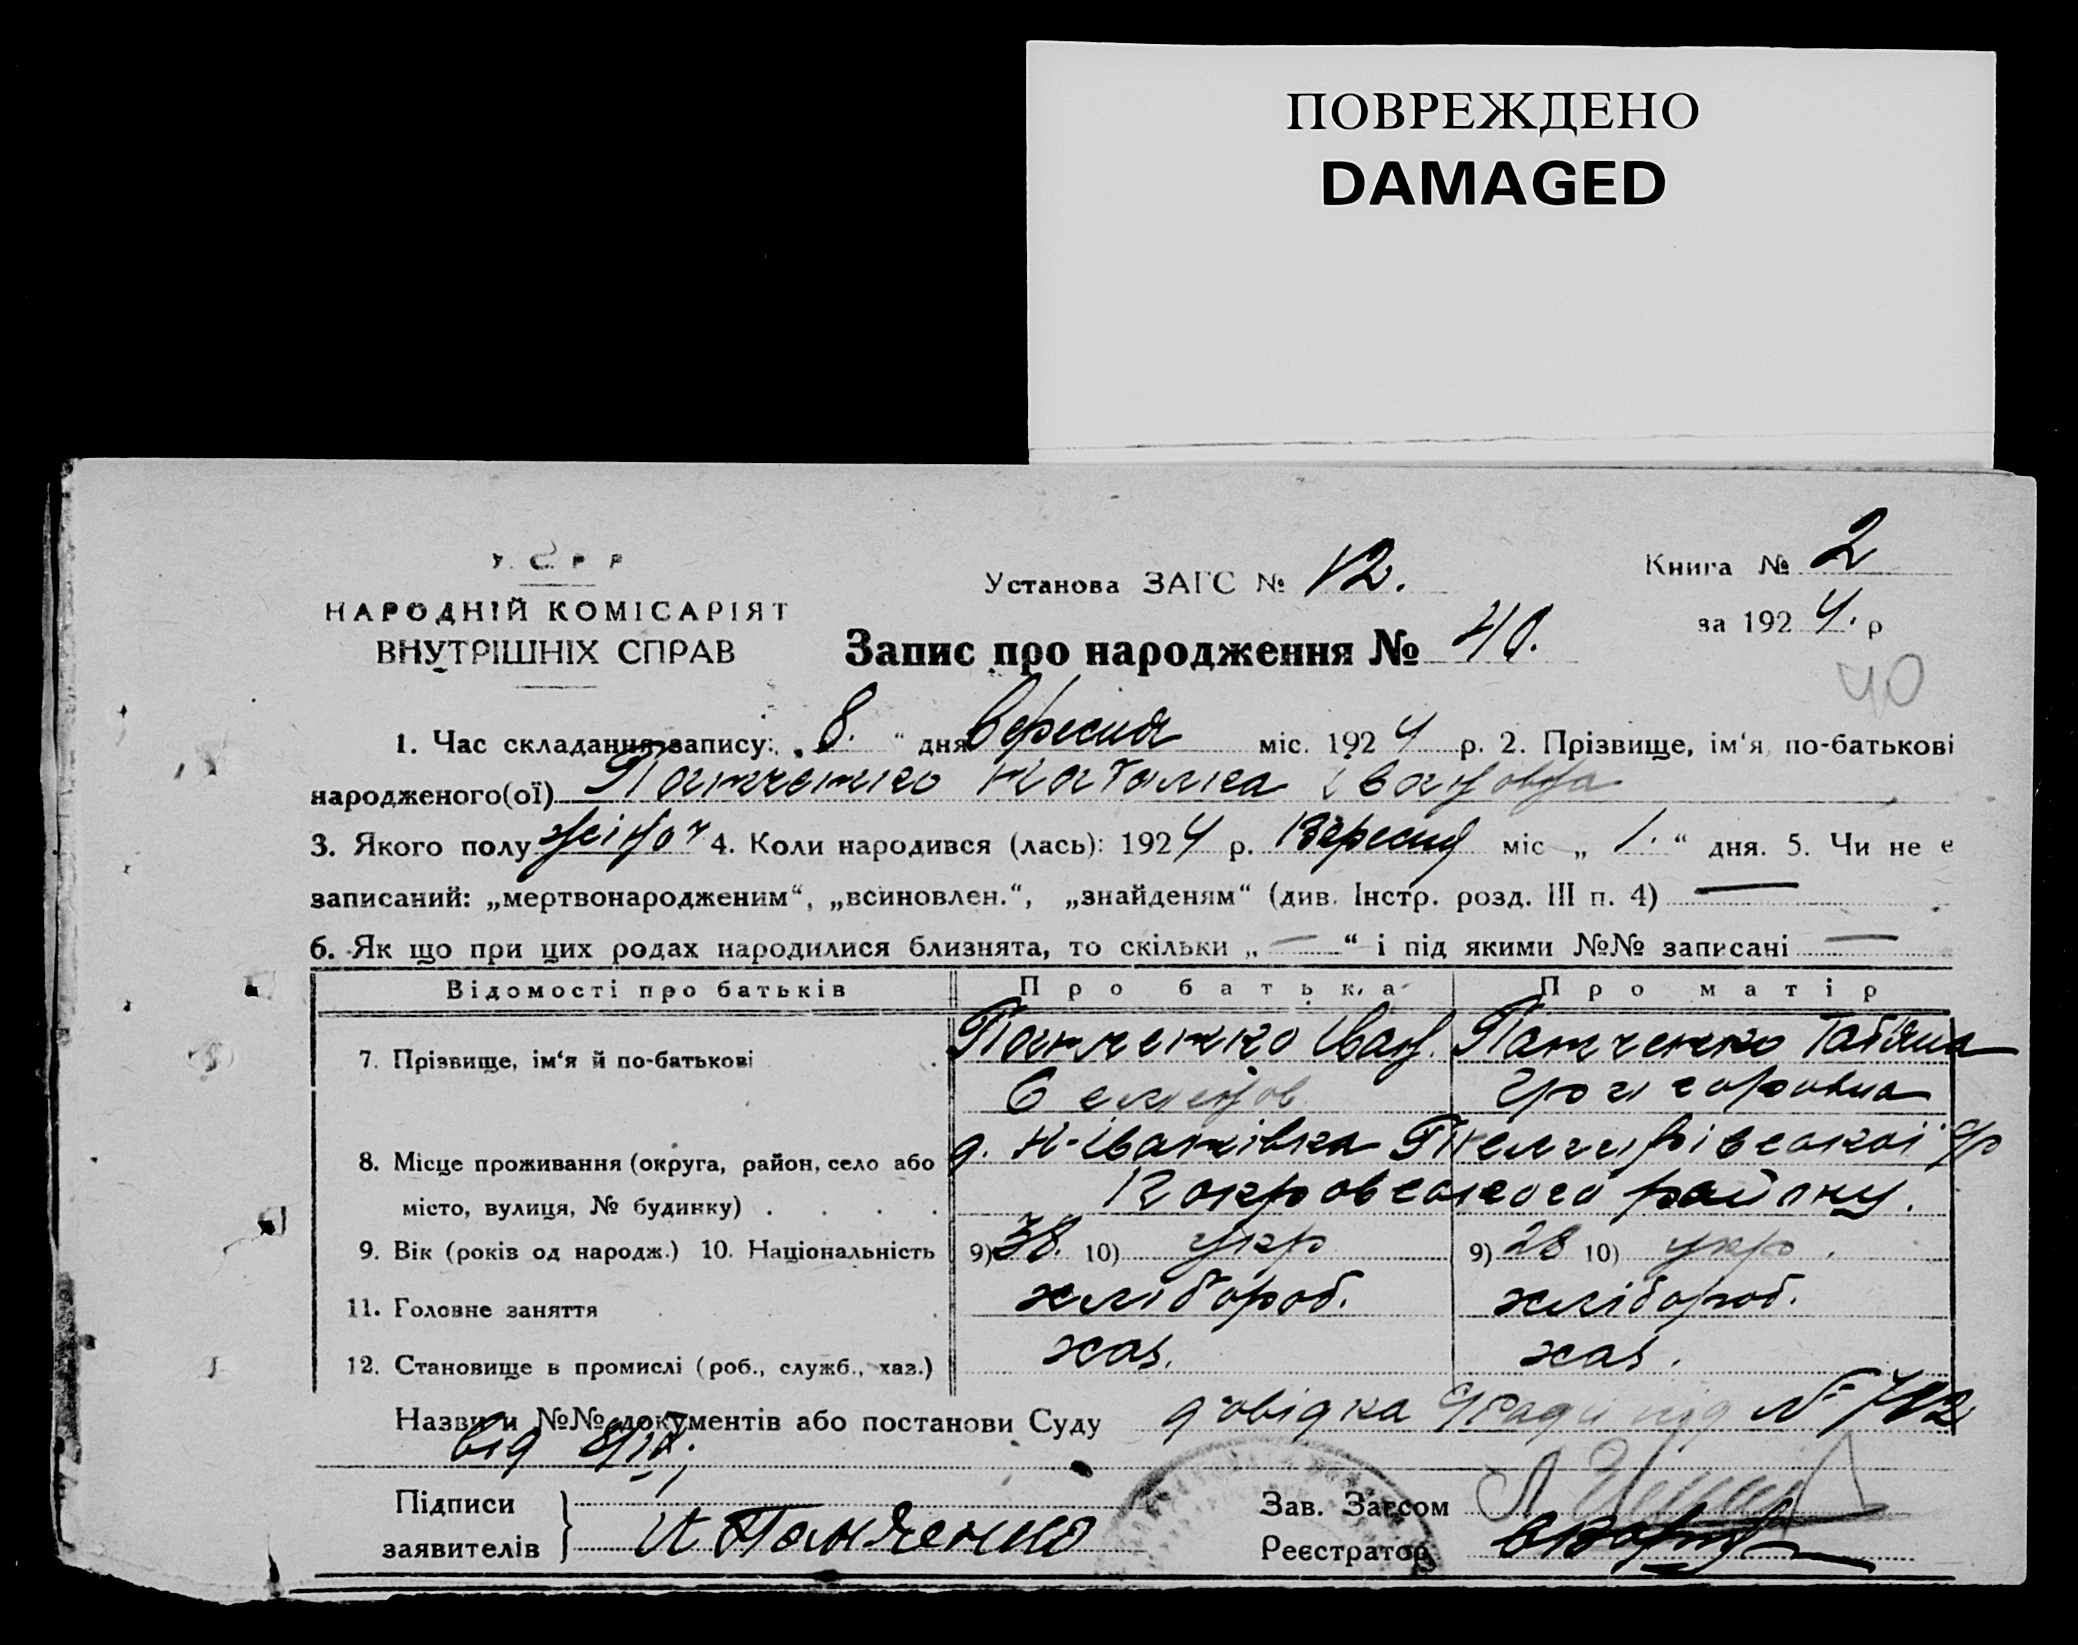 ПОВРЕЖДЕНО
DAMAGED
У. С. Р. Р
НАРОДНІЙ КОМІСАРІЯТ
ВНУТРІШНІХ СПРАВ
Установа ЗАГС № 12.
Книга № 2
за 1924. р
Запис про народження № 40.
40
1. Час складання запису: „8.“ дня Вересня міс. 1924 р. 2. Прізвище, ім'я, по-батькові
народженого(ої) Панченко Наталка Івановна
3. Якого полу жіноч 4. Коли народився (лась): 1924 р. Вересня міс „1.“ дня. 5. Чи не є
записаний: „мертвонародженим“, „всиновлен.“, „знайденям“ (див. Інстр. розд. III п. 4) —
6. Як що при цих родах народилися близнята, то скільки „—“ і під якими №№ записані —
Відомості про батьків Про батька Про матір
7. Прізвище, ім'я й по-батькові Панченко Іван. Панченко Татяна
Семенов Григоровна
8. Місце проживання (округа, район, село або д. Н-Іванівка
місто, вулиця, № будинку) . . . . Покровського району.
9. Вік (років од народж.) 10. Національність 9) 38. 10) укр 9) 28 10) укр.
11. Головне заняття хлібороб. хлібороб.
12. Становище в промислі (роб., служб., хаз.) хаз. хаз.
Назви и №№ документів або постанови Суду довідка №
від 8/IX,
Підписи
заявителів И Панченко
Зав. Загсом
Реєстратор